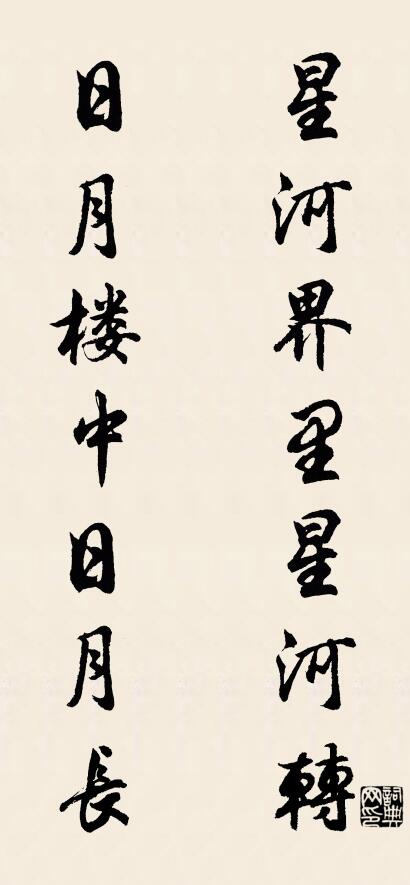 星河界里星河轉
日月楼中日月長
詞典网印